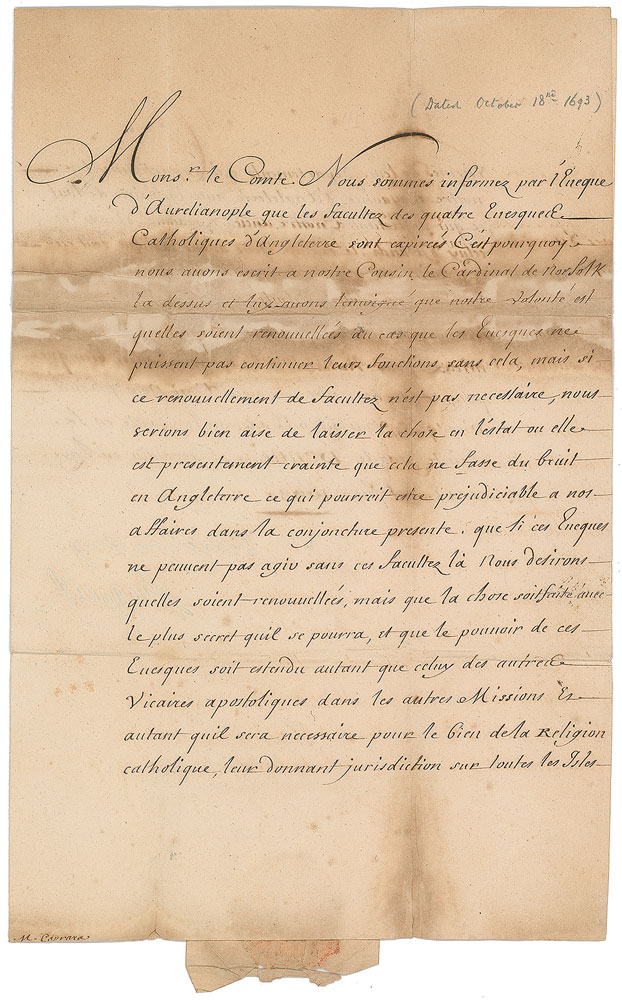 (Dated October 18th 1693)
Monsr. le Comte. Nous sommes informez par l'Eueque
d'Aurelianople que les facultez des quatre Euesques
Catholiques d'Angleterre sont expireés C'est pourquoy
nous auons escrit a nostre Cousin le Cardinal de Norfolk
la dessus et luy auons temoigné que nostre volonté est
quelles soient renouuelleés au cas que les Euesques ne
puissent pas continuer leurs fonctions sans cela, mais si
ce renouuellement de facultez n'est pas necessaire, nous
serions bien aise de laisser la chose en l'estat ou elle
est presentement crainte que cela ne fasse du bruit
en Angleterre ce qui pourroit estre prejudiciable a nos
affaires dans la conjoncture presente. que si ces Eueques
ne peuuent pas agir sans ces facultez là Nous desirons
quelles soient renouuelleés, mais que la chose soit faite auec
le plus secret quil se pourra, et que le pouuoir de ces
Euesques soit estendu autant que celuy des autres
Vicaires apostoliques dans les autres Missions Et
autant quil sera necessaire pour le bien de la Religion
catholique, leur donnant jurisdiction sur toutes les Isles
M. Caprara